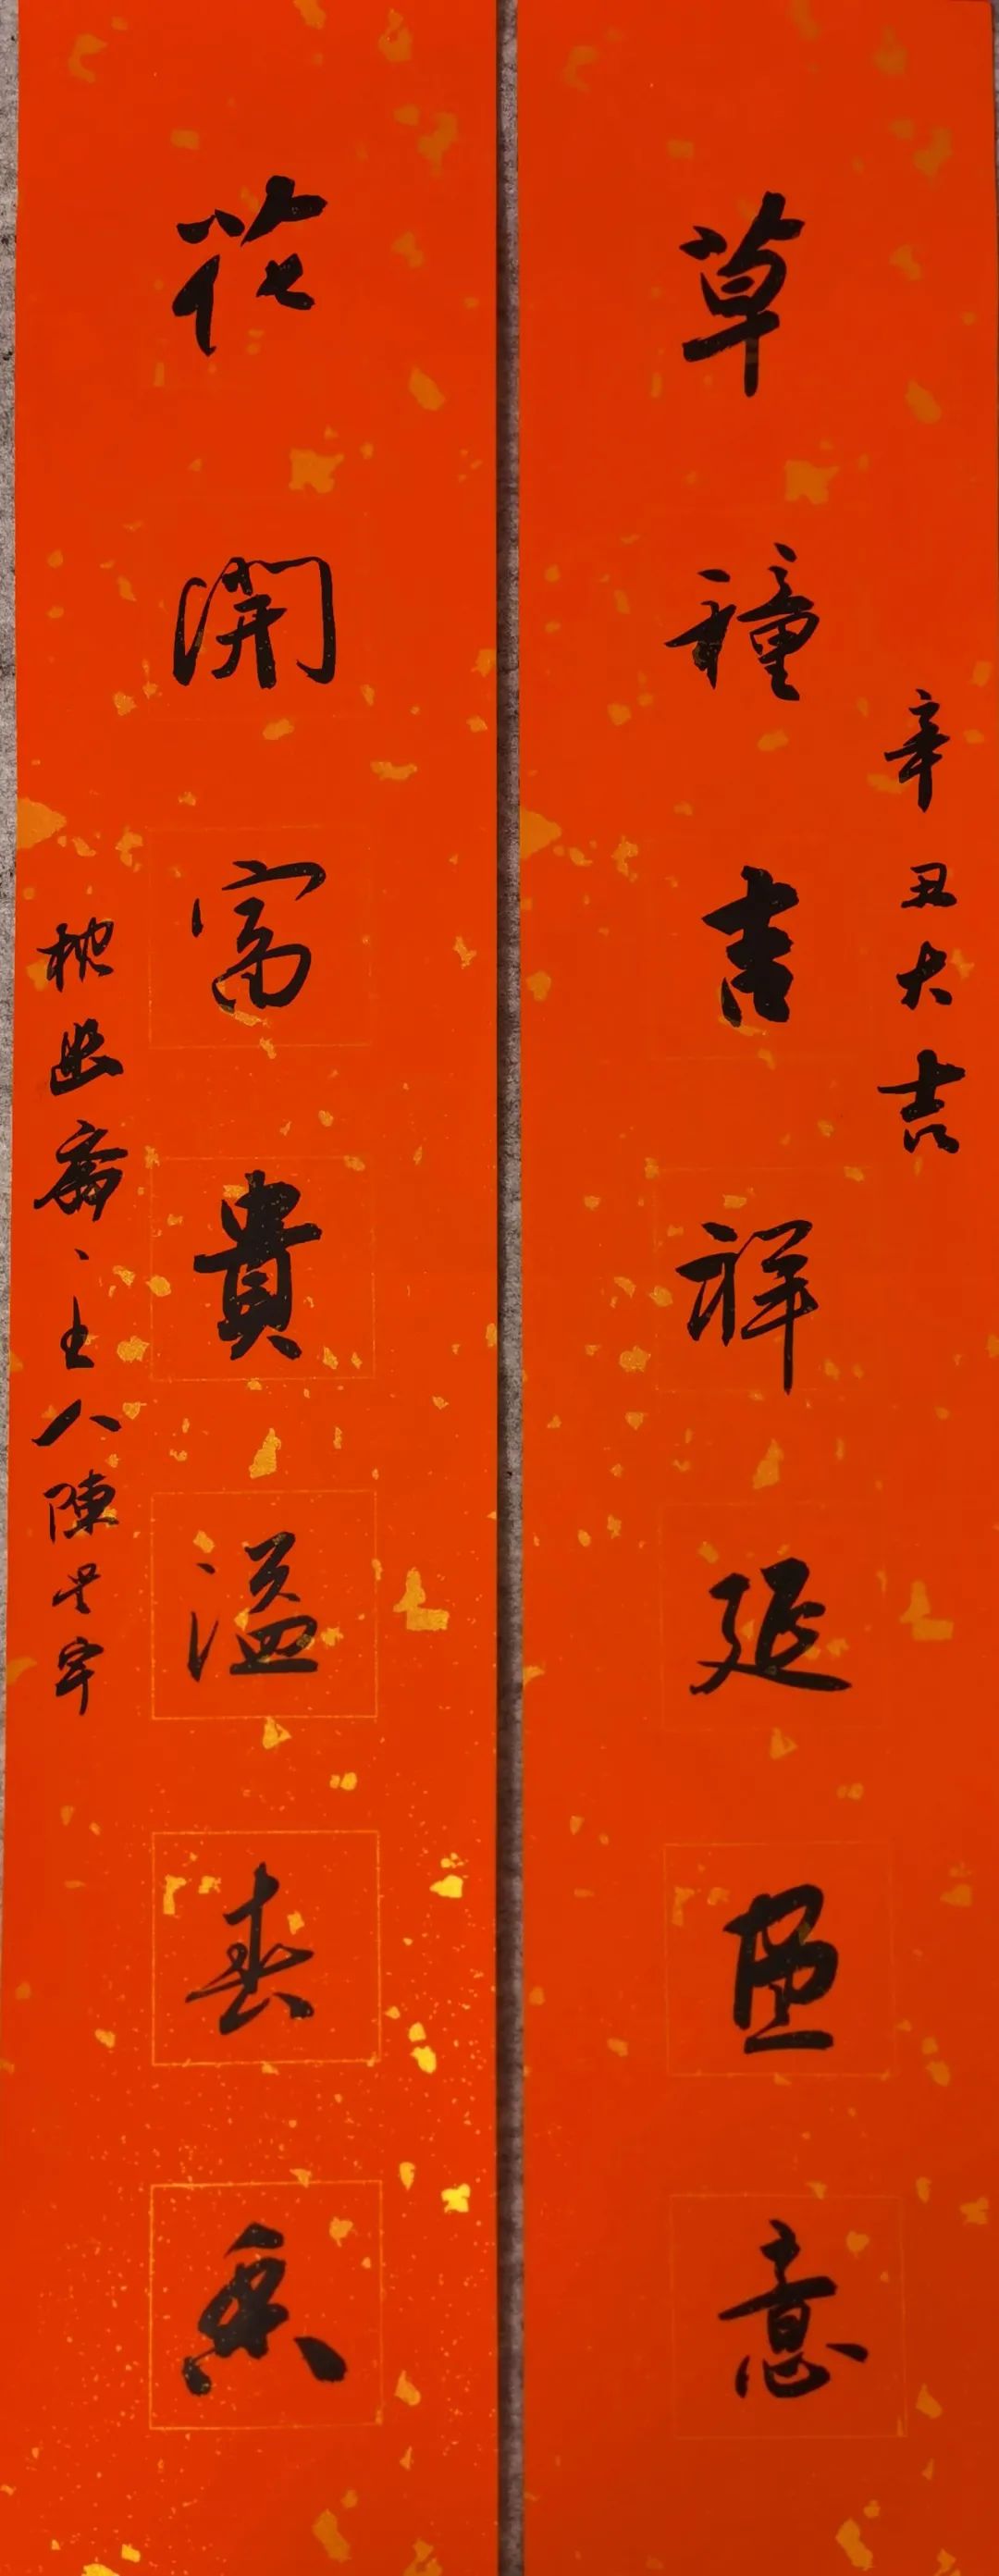 辛丑大吉
草種吉祥延意
花開富貴溢春香
枕幽齋主人陳